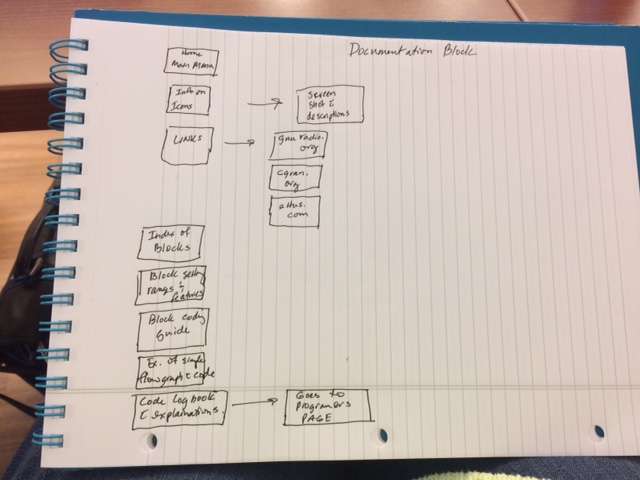 Documentation Block
Home
Main Menu
Info on
Icons
Screen
Shot &
descriptions
LINKS
gnuradio.
org
cgran.
org
ettus.
com
Index of
Blocks
Block
ranges &
features
Block coding
Guide
Ex. of simple
flowgraph & code
Code Logbook
& explainations.
Goes to
Programers
PAGE